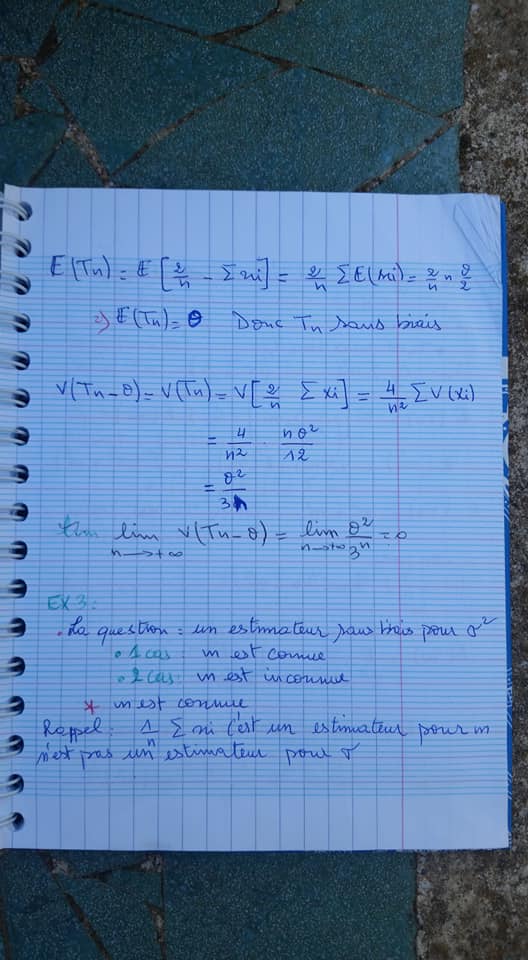 E(Tn) = E[2/n - Σxi] = 2/n ΣE(xi) = 2/n n θ/2
=> E(Tn) = θ Donc Tn sans biais
V(Tn-θ) = V(Tn) = V[2/n Σxi] = 4/n² ΣV(xi)
= 4/n² . nθ²/12
= θ²/3n
lim lim n→+∞ V(Tn-θ) = lim n→+∞ θ²/3n = 0
EX3:
. La question : un estimateur sans biais pour σ²
• 1 cas : m est connue
• 2 cas : m est inconnue
* m est connue
Rappel : 1/n Σxi c'est un estimateur pour m
n'est pas un estimateur pour σ